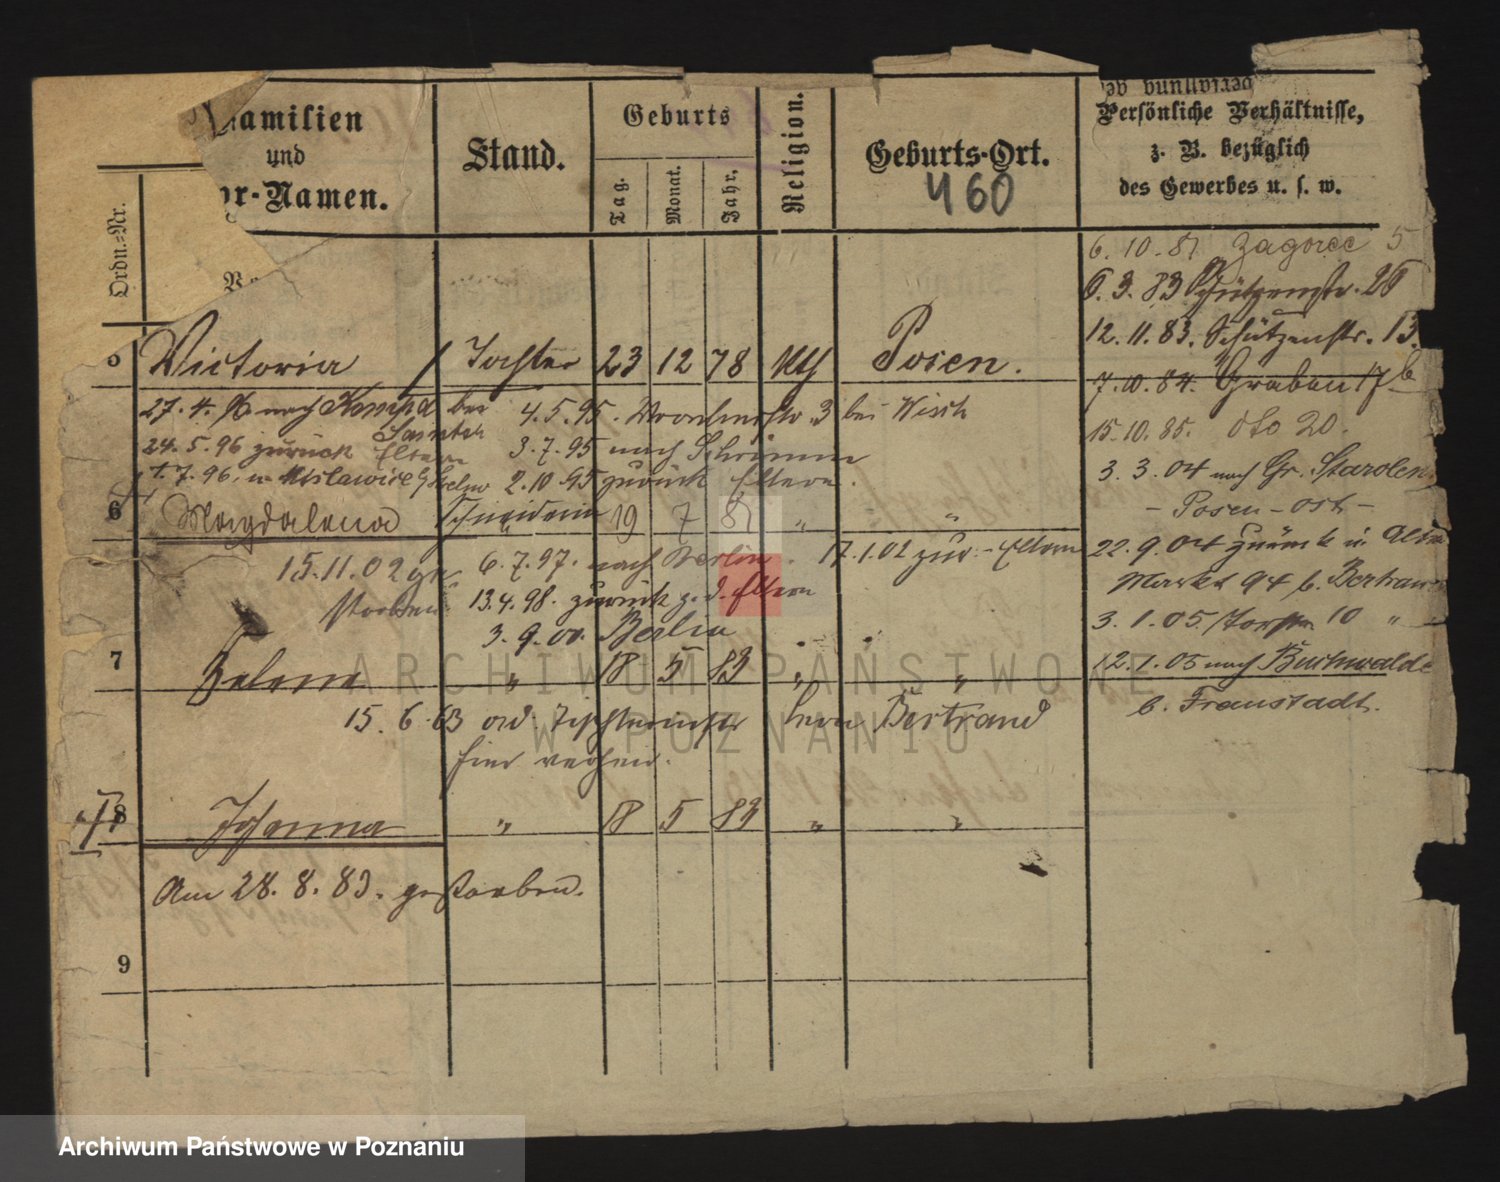 Familien
und
Vor-Namen.
Ordn.-Nr.
Stand.
Geburts
Tag.
Monat.
Jahr.
Religion.
Geburts-Ort.
460
Persönliche Verhältnisse,
z. B. bezüglich
des Gewerbes u. s. w.
6. 10. 81 Zagorze 5
6. 3. 83 Schützenstr. 26
12. 11. 83. Schützenstr. 13.
7. 10. 84. Graben 17 b
15. 10. 85. dto 20.
3. 3. 04 nach Gr. Starolen
- Posen - Ost -
22. 9. 04 zurück in Alte
Markt 94 b. Bertrand
3. 1. 05. 10 "
12. 1. 05 nach Buchwalde
b. Fraustadt.
5 Victoria Tochter 23 12 78 kth Posen.
27. 4. 96 nach Kempa bei
4. 5. 95. 3 bei Wisch
24. 5. 96 zurück Eltern
3. 7. 95 nach Schrimm
7. 96.
2. 10. 95 zurück Eltern.
6 Magdalena Schneiderin 19 7 81 " "
15. 11. 02 ge
storben
6. 7. 97. nach Berlin.
17. 1. 02 zur. Eltern
13. 4. 98. zurück z. d. Eltern
3. 9. 00. Berlin
7 Helene " 18 5 83 " "
15. 6. 63 Bertrand
hier
8 Johanna " 18 5 83 " "
Am 28. 8. 83. gestorben.
9
ARCHIWUM PAŃSTWOWE
W POZNANIU
Archiwum Państwowe w Poznaniu